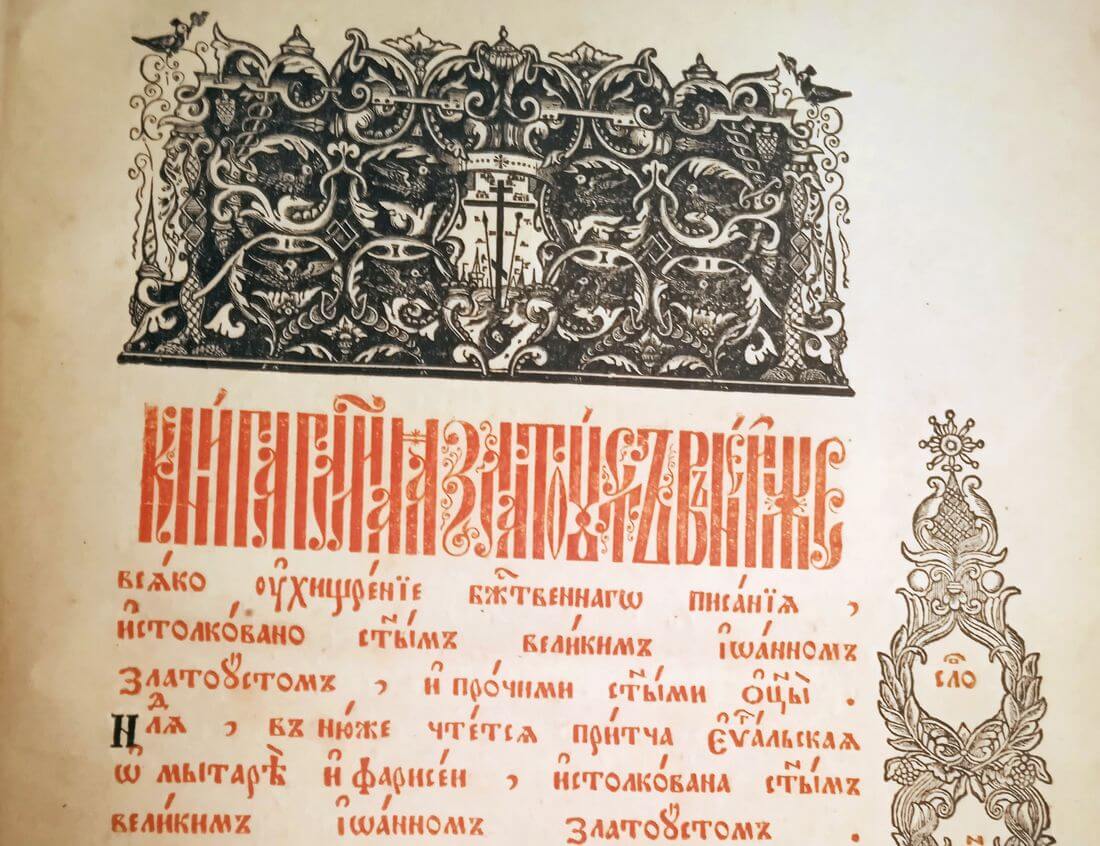 КНИ́ГА ГЛ҃ЕМАѦ ЗЛАТОУ́СТЪ В НЕ́ЙЖЕ
всѧ́ко оу҆хищре́нїе бж҃твеннагѡ писа́нїѧ ,
и҆столко́вано ст҃ы́мъ вели́кимъ і҆ѡа́нномъ
златоꙋ́стомъ , и҆ про́чими ст҃ы́ми о҆ц҃ы̀ .
Нⷣлѧ , въ ню́же чте́тсѧ при́тча є҆ѵⷢ҇а́льскаѧ
ѡ҆ мытарѣ̀ и҆ фарисе́и , и҆столко́вана ст҃ы́мъ
вели́кимъ і҆ѡа́нномъ златоꙋ́стомъ .
сло